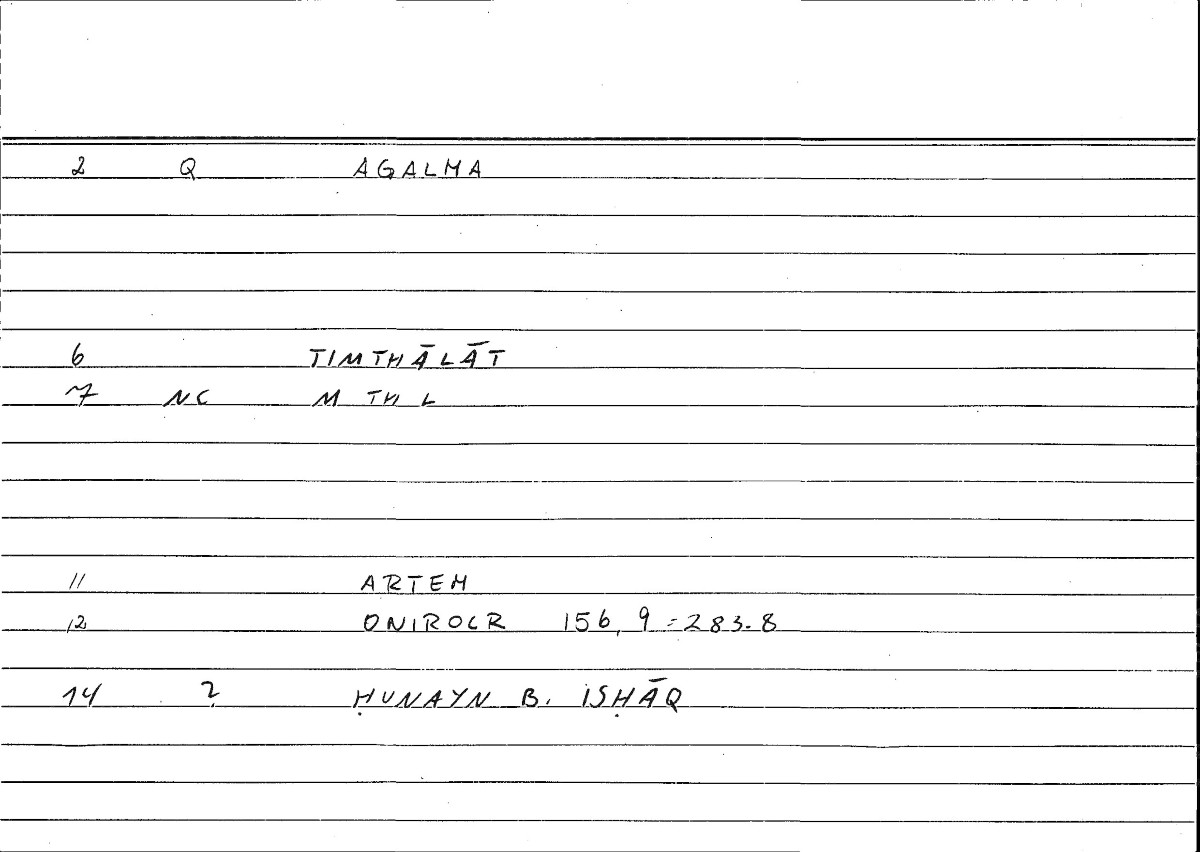 2 Q AGALMA
6 TIMTHĀLĀT
7 NC M TH L
11 ARTEM
12 ONIROCR 156, 9 = 283.8
14 ? ḤUNAYN B. ISḤĀQ